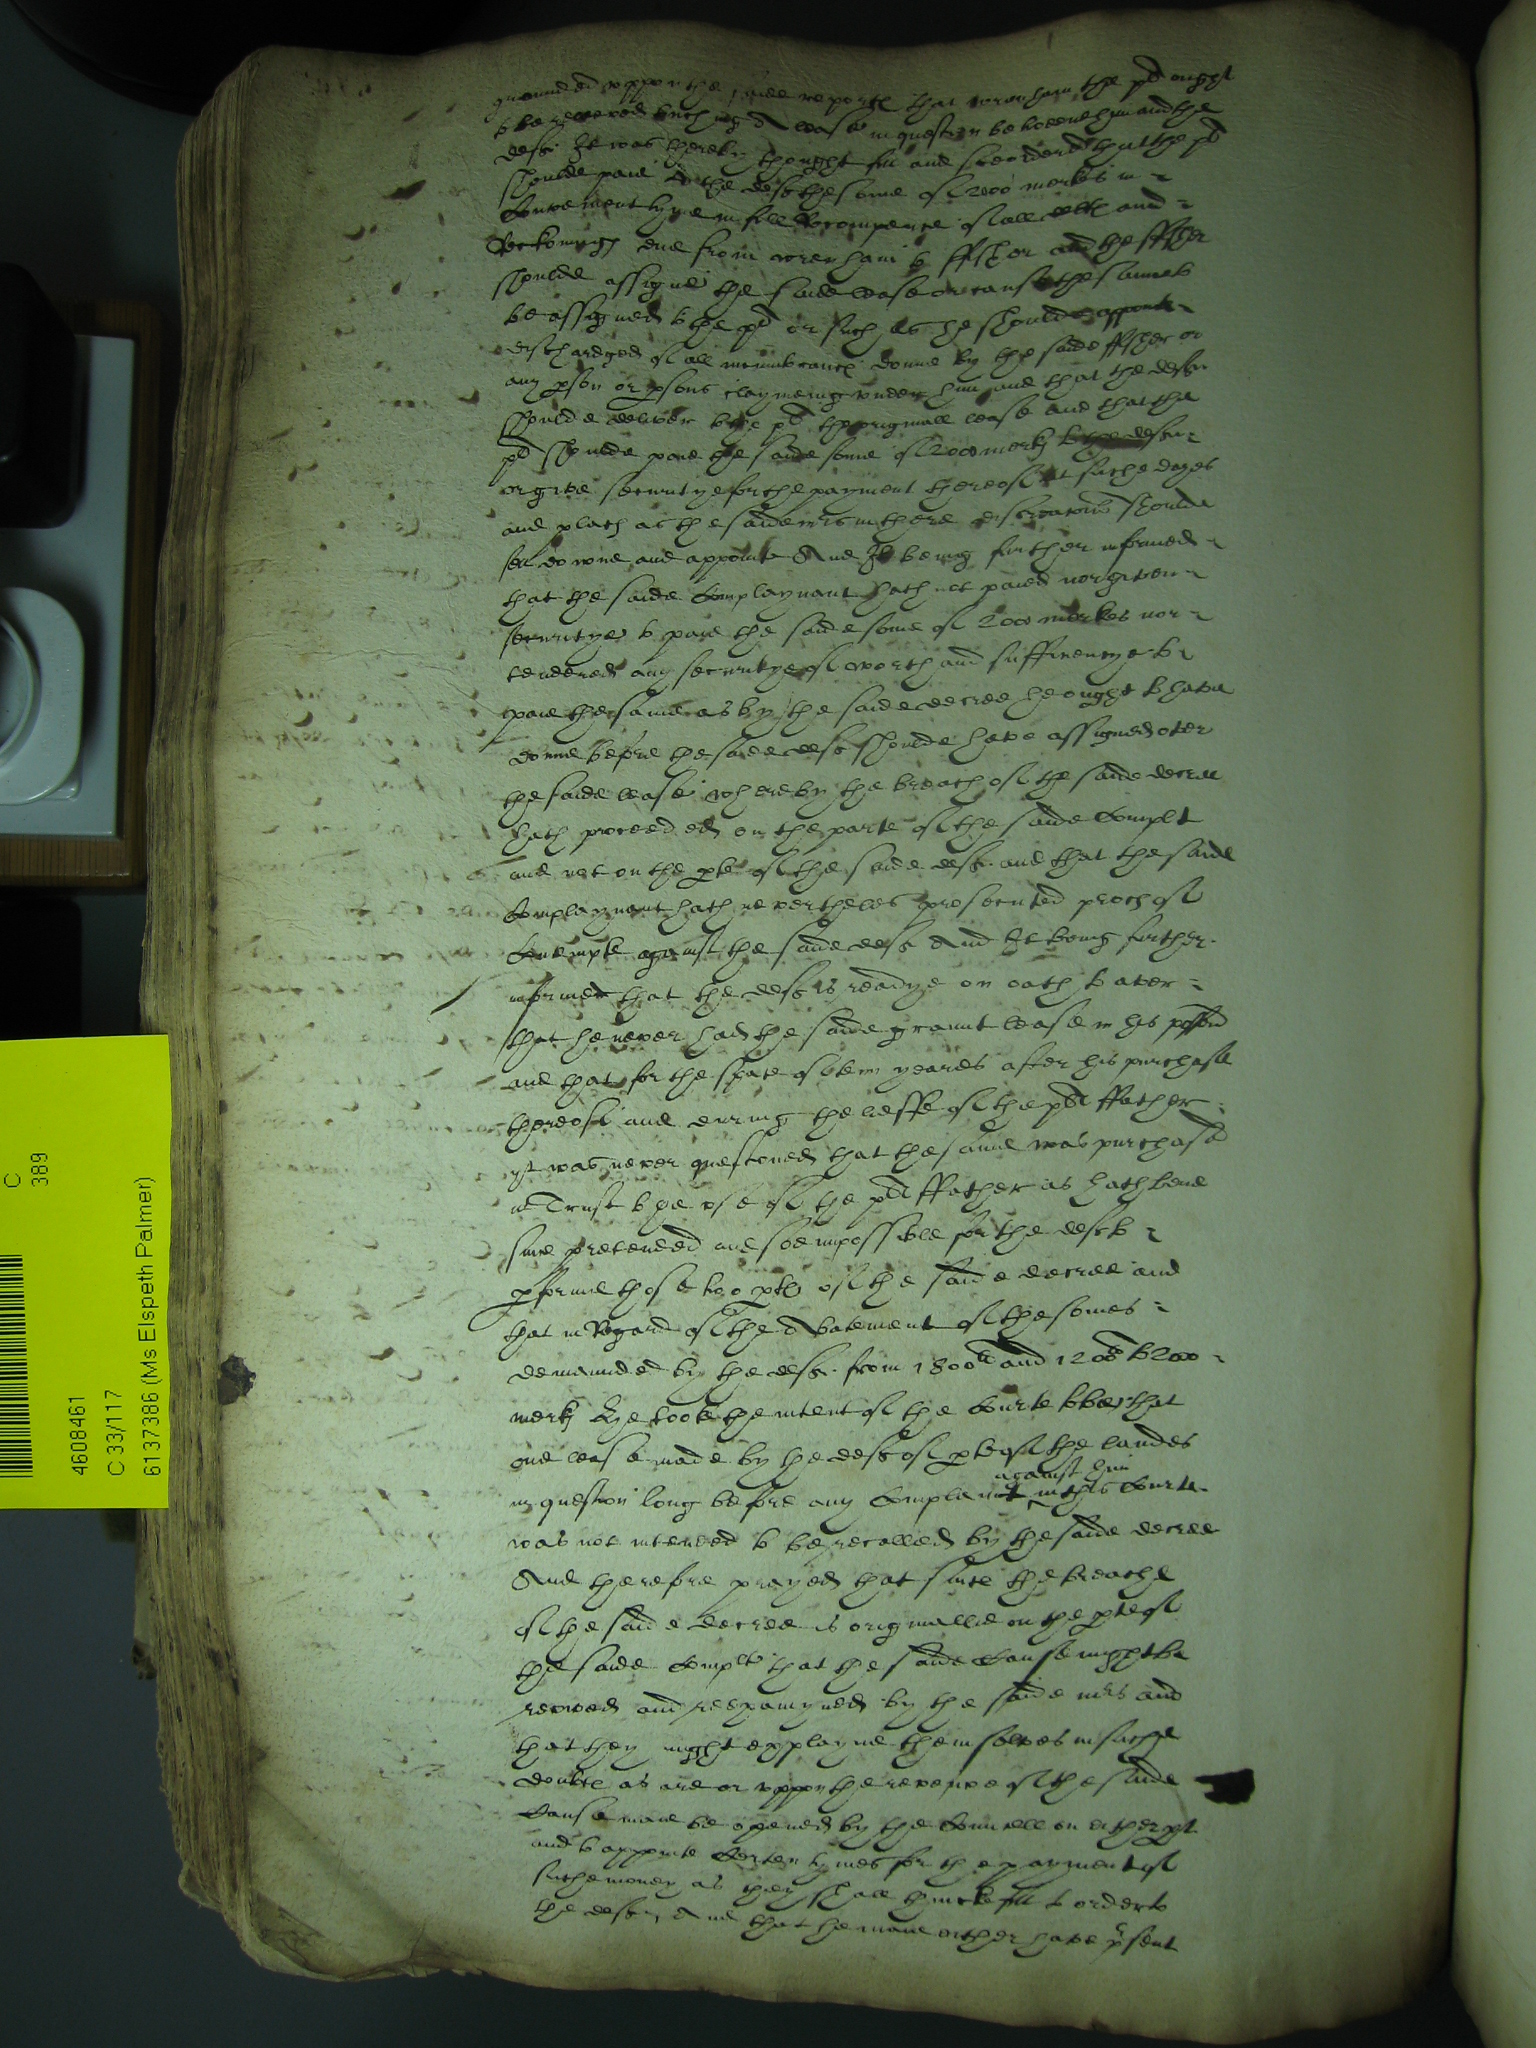 grounded uppon the saide reporte that Wrenham the pl ought
to be releeved touching a lease in question betweene him and the
deft. It was thereby thought fitt and soe ordered that the pl
shoulde paie to the deft the some of 2000 merkes in
Convenient tyme in full Recompence of all debte and
Reckoninge due from Wrenham to ffisher and the ffisher
shoulde assigne the saide lease or cause the same to
be assigned to the pl or such as he should appoint
discharged of all incumbrance donne by the saide ffisher or
any pson or psons claymeing under him and that the deft
should deliver to the pl the originall lease and that the
pl shoulde paie the saide some of 2000 merk to the deft
or give securitye for the payment thereof at suche dayes
and place as the saide mrs in there discreacons shoulde
sett downe and appointe And It being further informed
that the saide Complaynant hath not paied nor given
securitye to paie the saide some of 2000 merkes nor
tendered any securitye of worth and sufficiencye to
paie the same as by the saide decree he ought to have
donne before the saide deft shoulde have assigned over
the saide lease whereby the breach of the saide decree
hath proceeded on the parte of the saide Complt
and not on the pte of the saide deft. and that the saide
Complaynant hath nevertheles prosecuted proces of
Contempte against the saide deft And It being further
informed that the deft is readye on oath to aver
that he never had the saide graunt lease in his possion
and that for the space of yeares after his purchase
thereof and during the lieffe of the pl ffather
yt was never questioned that the same was purchased
in Trust to the use of the pl ffather as hath bene
since pretended and soe impossible for the deft to
pforme those two pte of the saide decree and
that in Regard of the Abatement of the somes
demaunded by the deft. from 1800li and 1200li to 2000
merk Hye tooke the intent of the Courte to be that
one lease made by the deft of pte of the landes
against him
in question long before any Complaint in this Courte
was not intended to be recalled by the saide decree
And therefore prayed that since the breache
of the saide decree is originallie on the pte of
the saide Complt that the saide Cause might be
revived and reexamyned by the saide mrs and
that they might explayne themselves in suche
doubte as are or uppon the reveiwe of the saide
Cause maie be opened by the Councell on either pt
and to appointe Certen tymes for the payment of
suche money as they shall thincke fitt to order to
the deft, And that he maie either have psent
4608461
C 33/117
6137386 (Ms Elspeth Palmer)
C
389